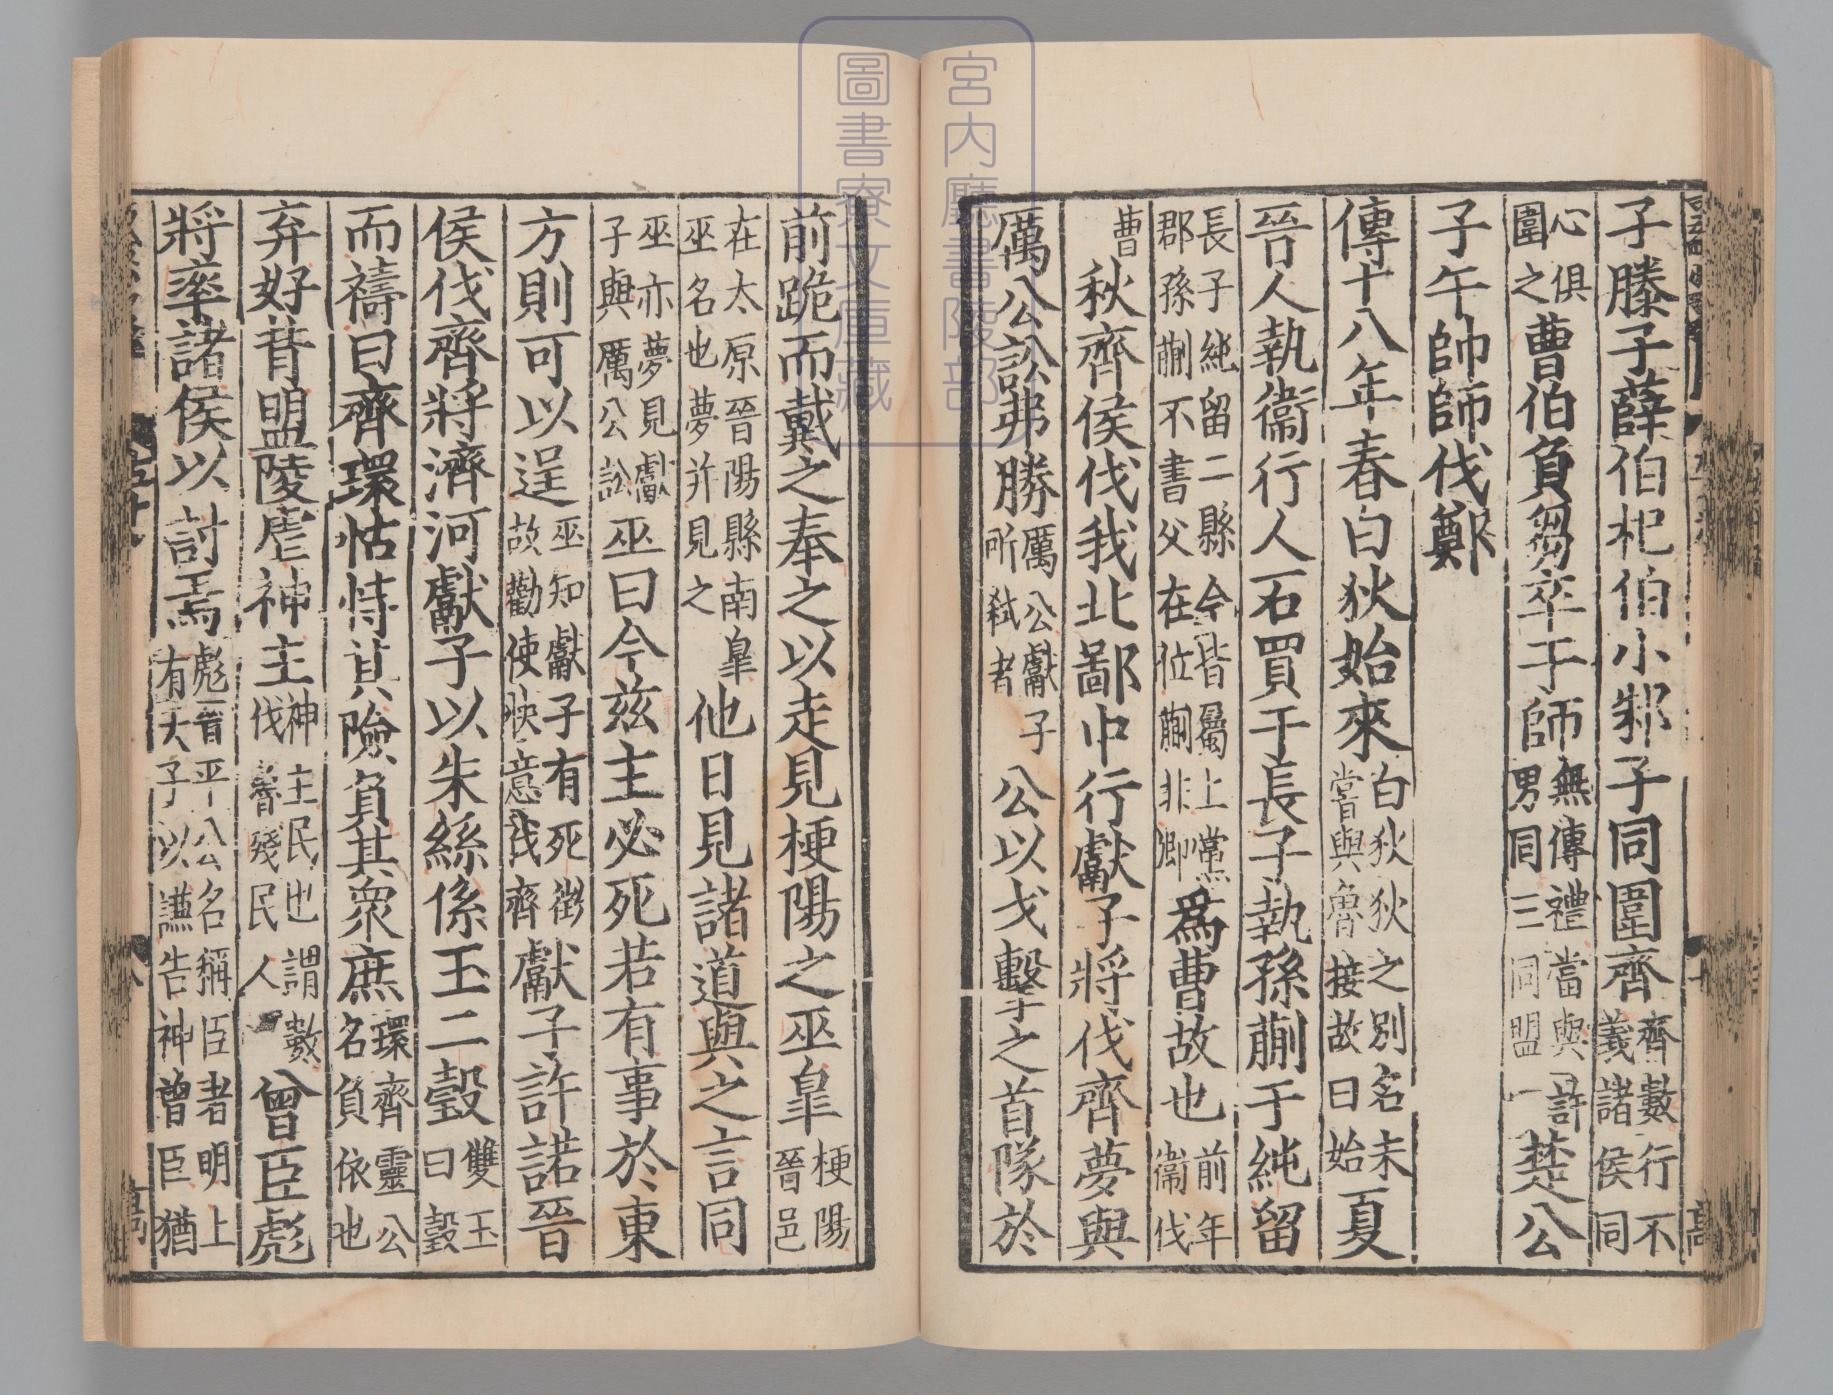 子滕子薛伯杞伯小邾子同圍齊齊數行不義諸侯同
心俱圍之曹伯負芻卒于師無傳禮當與許男同三同盟一楚公
子午帥師伐鄭
傳十八年春白狄始來白狄狄之別名未嘗與魯接故曰始夏
晉人執衞行人石買于長子執孫蒯于純留
長子純留二縣今皆屬上黨郡孫蒯不書父在位蒯非卿爲曹故也前年衞伐
曹秋齊侯伐我北鄙中行獻子將伐齊夢與
厲公訟弗勝厲公獻子所弑者公以戈擊之首隊於
前跪而戴之奉之以走見梗陽之巫皐梗陽晉邑
在太原晉陽縣南皐巫名也夢并見之他日見諸道與之言同
巫亦夢見獻子與厲公訟巫曰今兹主必死若有事於東
方則可以逞巫知獻子有死徵故勸使快意伐齊獻子許諾晉
侯伐齊將濟河獻子以朱絲係玉二瑴雙玉曰瑴
而禱曰齊環怙恃其險負其衆庶環齊靈公名負依也
弃好背盟陵虐神主神主民也謂數伐魯殘民人曾臣彪
將率諸侯以討焉彪晉平公名稱臣者明上有天子以謙告神曾臣猶
宮内廳書陵部
圖書寮文庫藏